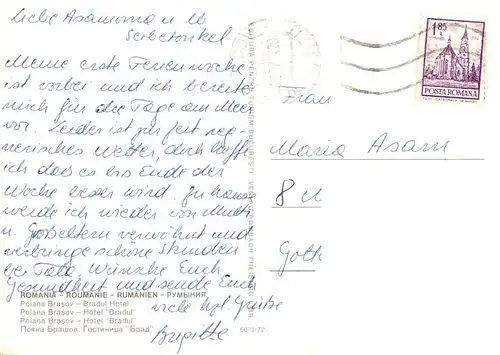 Liebe Asamoma u Ub
Seibetonkel
Meine erste Ferienwoche
ist vorbei und ich bereite
mich für die Tage am Meer
vor. Leider ist zur zeit reg
nerisches Wetter, doch hoffe
ich das es bis Ende der
Woche besser wird. Zu hause
werde ich wieder von Mutti
u. Großeltern verwöhnt und
verbringe schöne Stunden
bei Tata. Wünsche Euch
Gesundheit und sende Euch
viele hzl. Grüße
Brigitte
ROMANIA – ROUMANIE – RUMÄNIEN – РУМЫНИЯ
Poiana Braşov – Bradul Hotel
Poiana Braşov – Hôtel "Bradul"
Poiana Braşov – Hotel "Bradul"
Пояна Брашов. Гостиница "Брад"
5073/72
EDITURA PENTRU TURISM BUCUREŞTI
1,85
L
POSTA ROMANA
Frau
Maria Asam
8 U
Goth